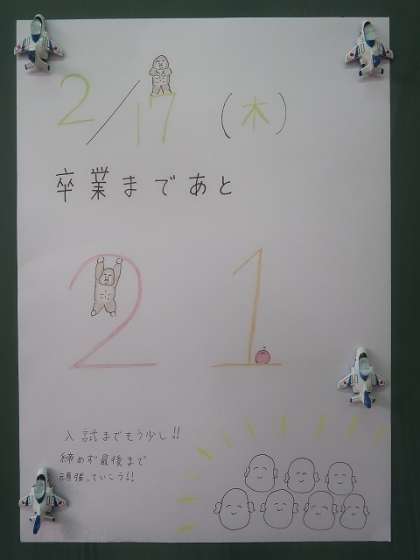 2/17 (木)
卒業まであと
21
入試までもう少し!!
締めず最後まで
頑張っていこうる!!